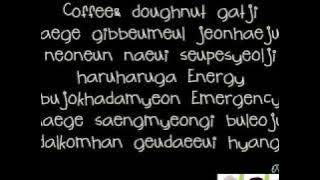 Coffee& doughnut gatji
aege gibbeumeul jeonhaeju
neoneun naeui seupesyeolji
haruharuga Energy
bujokhadamyeon Emergency
aege saengmyeongi buleoju
dalkomhan geudaeeui hyang